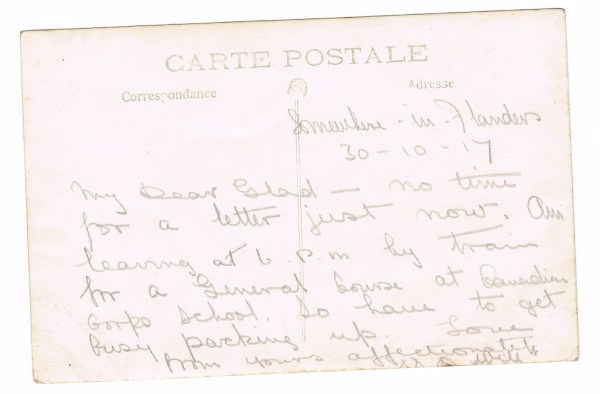 CARTE POSTALE
Correspondance
Adresse
Somewhere - in - Flanders
30 - 10 - 17
My Dear Glad — no time
for a letter just now. Am
leaving at 6 p.m by train
for a General Course at Canadian
Corps School. So have to get
busy packing up. Love
from yours affectionately